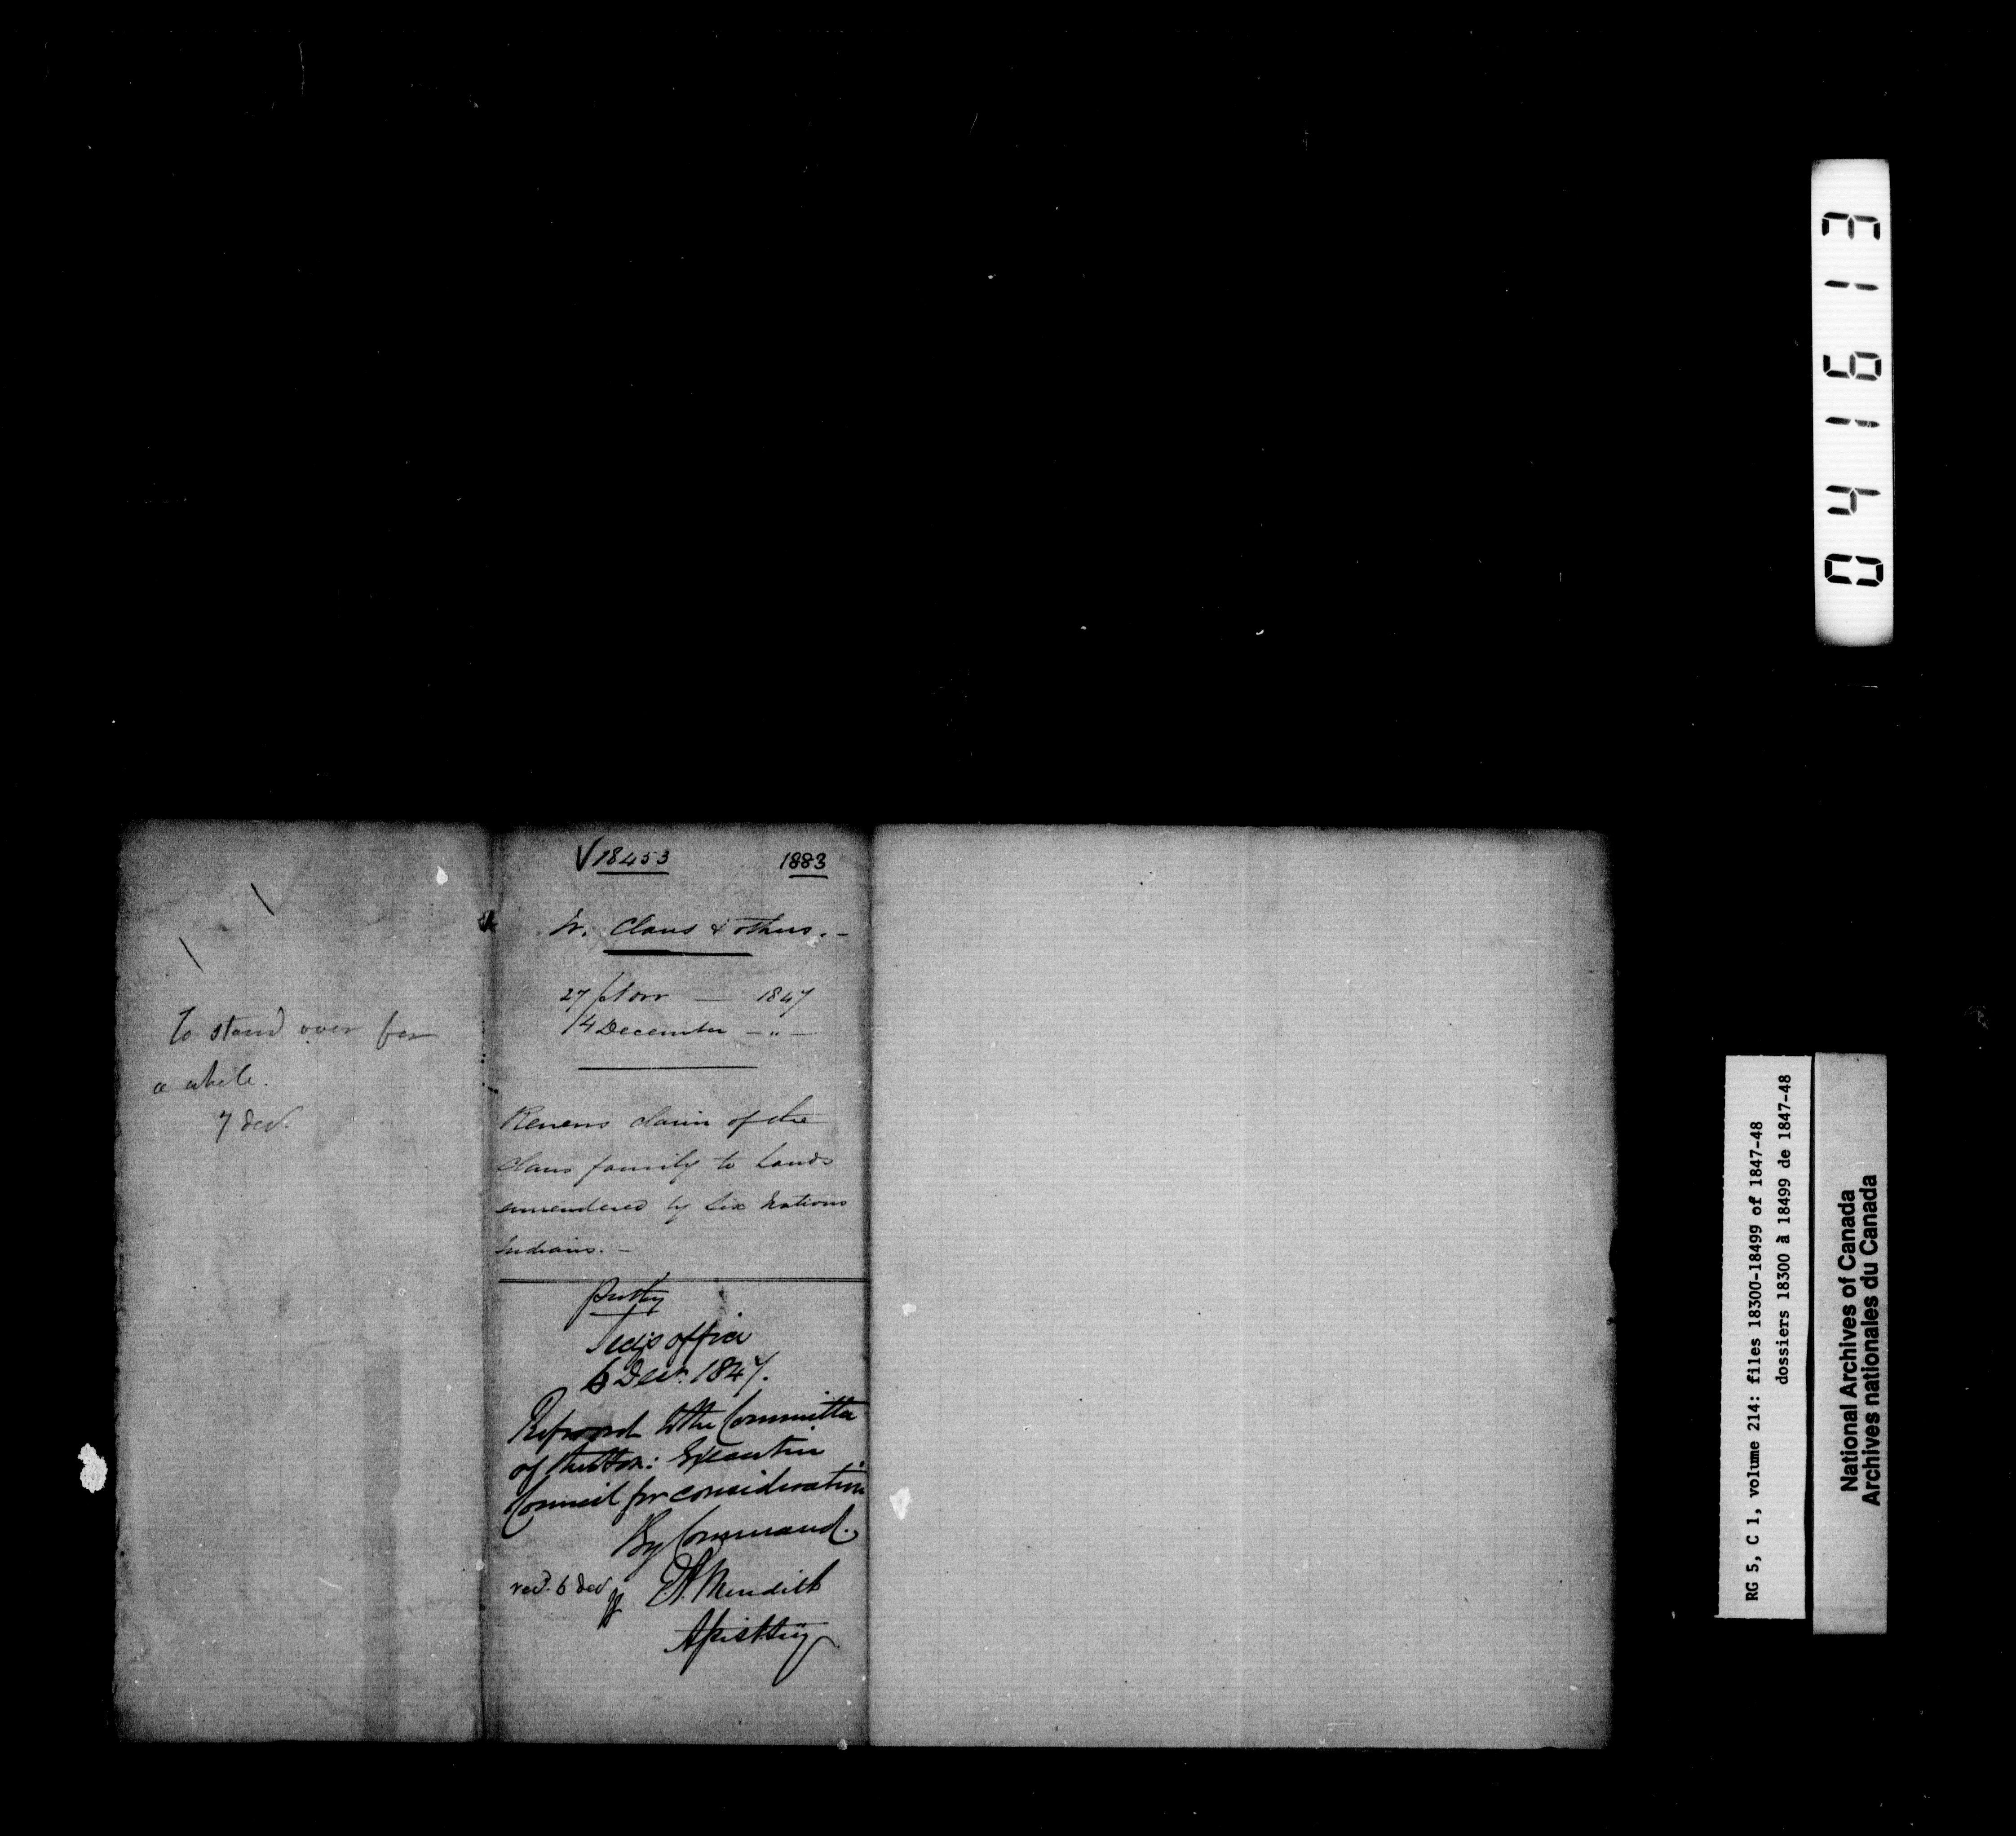 To stand over for
a while.
7 Decr.
√18453 1883
W. Claus & others. -
27 Novr — 1847
/4 December - " -
Renews claim of the
Claus family to Lands
surrendered by Six Nations
Indians. -
Secy's office
6 Decr. 1847.
Referred to the Committee
of the Hon: Executive
Council for consideration
By Command.
recd. 6 Decr
E.A. Meredith
Asst Secy
041613
RG 5, C 1, volume 214: files 18300-18499 of 1847-48
dossiers 18300 à 18499 de 1847-48
National Archives of Canada
Archives nationales du Canada